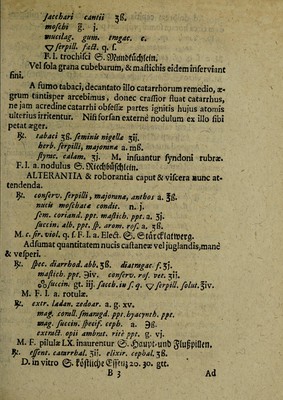 sacchari cantii ʒß.
moschi g. j.
mucilag. gum. tragac. c.
🜄 serpill. fact. q. s.
F. l. trochisci S. Mundküchlein.
Vel sola grana cubebarum, & mastichis eidem inserviant
fini.
A fumo tabaci, decantato illo catarrhorum remedio, æ-
grum tantisper arcebimus, donec crassior fluat catarrhus,
ne jam acredine catarrhi obsessæ partes ignitis hujus atomis
ulterius irritentur. Nisi forsan externè nodulum ex illo sibi
petat æger.
℞. tabaci ʒß. seminis nigellæ ʒij.
herb. serpilli, majoranæ a. mß.
styrac. calam. ʒj. M. insuantur syndoni rubræ.
F. l. a. nodulus S. Riechbüschlein.
ALTERANTIA & roborantia caput & viscera nunc at-
tendenda.
℞. conserv. serpilli, majoranæ, anthos a. ℥ß.
nucis moschatæ condit. n. j.
sem. coriand. ppt. mastich. ppt. a. ʒj.
succin. alb. ppt. sp. arom. ros. a. ʒß.
M. c. syr. viol. q. s. F. l. a. Elect. S. Stärcklatwerg.
Adsumat quantitatem nucis castaneæ vel juglandis, mane
& vesperi.
℞. spec. diarrhod. abb. ʒß. diatragac. f. ʒj.
mastich. ppt. ℈iv. conserv. ros. vet. ʒij.
succin. gt. iij. sacch. in s. q. 🜄 serpill. solut. ℥iv.
M. F. l. a. rotulæ.
℞. extr. ladan. zedoar. a. g. xv.
mag. corall. smaragd. ppt. hyacynth. ppt.
mag. succin. specif. ceph. a. ℈ß.
extract. opii ambrat. ritè ppt. g. vj.
M. F. pilulæ LX. inaurentur S. Haupt- und Flußpillen.
℞. essent. catarrhal. ʒij. elixir. cephal. ʒß.
D. in vitro S. köstliche Essentz 20. 30. gtt.
B 3 Ad